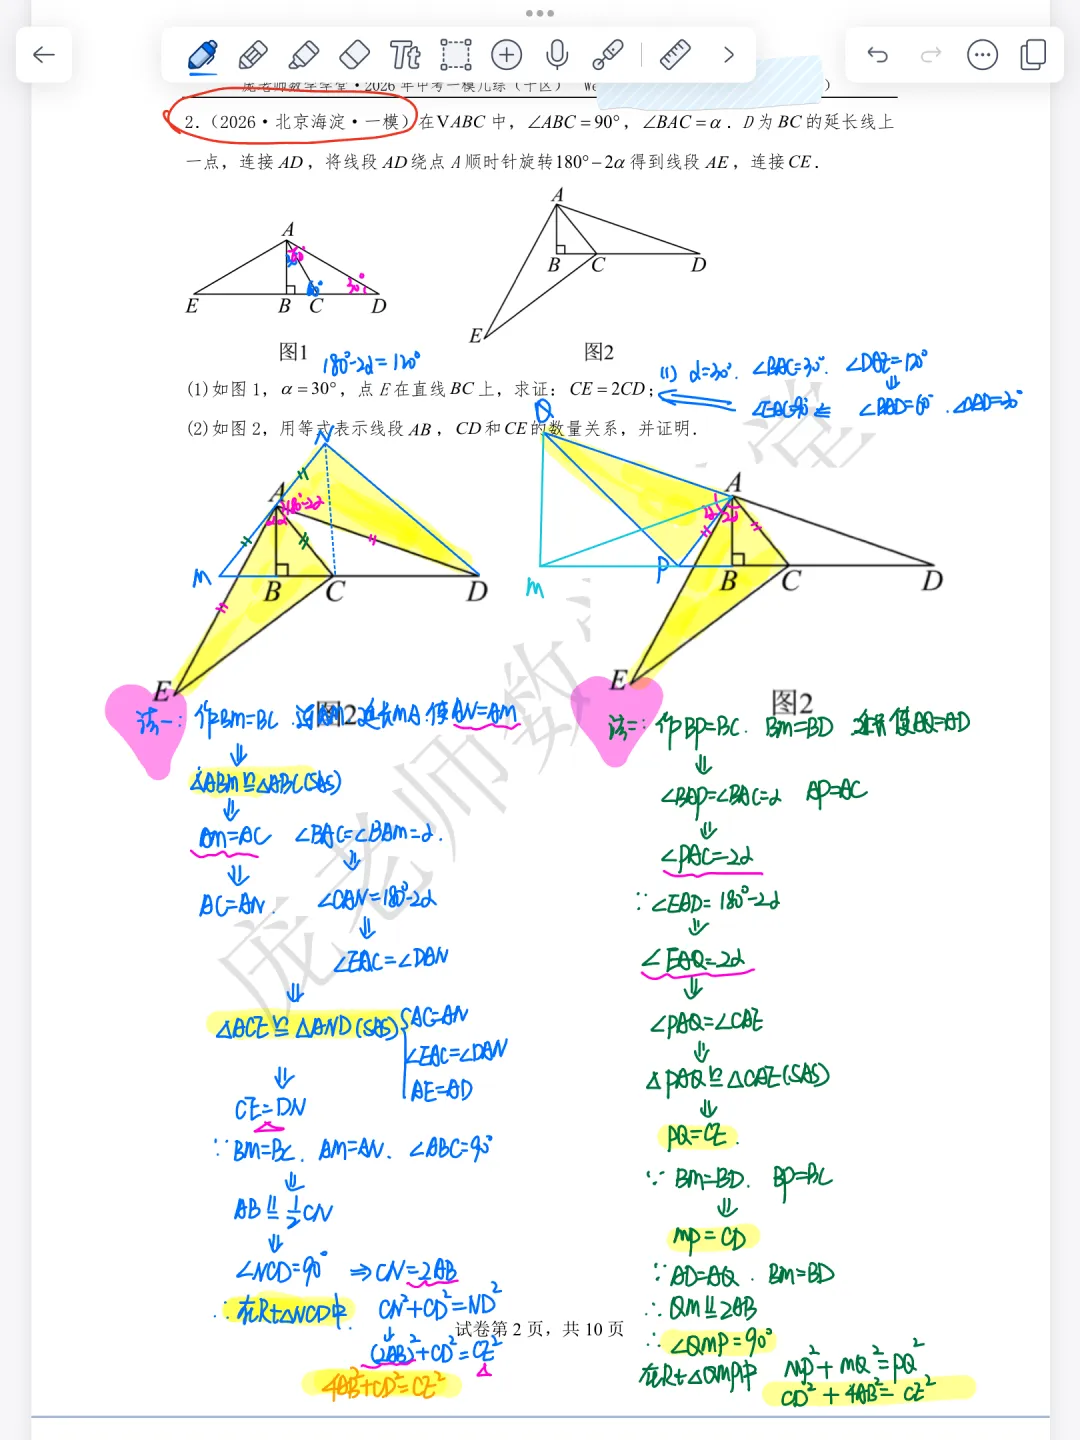 庞老师数学学堂·2026年中考一模几综（十区） We
)
2.（2026·北京海淀·一模）在VABC中，∠ABC=90°，∠BAC=α．D为BC的延长线上
一点，连接AD，将线段AD绕点A顺时针旋转180°−2α得到线段AE，连接CE．
A
E B C D
30° 30°
60°
30°
图1
A
B C D
E
图2
180°-2α=120°
(1)如图1，α=30°，点E在直线BC上，求证：CE=2CD；
(1) α=30°. ∠BAC=30° ∠DAE=120°
⇓
∠EAC=90° ⇐ ∠BAD=60°. ∠CAD=30°
(2)如图2，用等式表示线段AB，CD和CE的数量关系，并证明．
N
A
180°-2α
M B C D
E
图2
Q
A
M P B C D
E
图2
法一：作BM=BC. 延长MA.使AN=AM
⇓
△ABM≌△ABC(SAS)
⇓
AM=AC ∠BAC=∠BAM=α.
⇓ ⇓
AC=AN. ∠CAN=180°-2α
⇓
∠EAC=∠DAN
⇓
△ACE≌△AND(SAS) { AC=AN
∠EAC=∠DAN
AE=AD
⇓
CE=DN
∵BM=BC. AM=AN. ∠ABC=90°
⇓
AB ∥= 1/2 CN
⇓
∠NCD=90° ⇒ CN=2AB
∴在Rt△NCD中 CN²+CD²=ND²
↓
(2AB)²+CD²=CE²
4AB²+CD²=CE²
法二：作BP=BC. BM=BD 使AQ=AD
⇓
∠BAP=∠BAC=α AP=AC
⇓
∠PAC=2α
∵∠EAD=180°-2α
⇓
∠EAQ=2α
⇓
∠PAQ=∠CAE
⇓
△PAQ≌△CAE(SAS)
⇓
PQ=CE.
∵BM=BD. BP=BC
⇓
MP=CD
∵AD=AQ. BM=BD
∴QM ∥= 2AB
∴∠QMP=90°
在Rt△QMP中 MP²+MQ²=PQ²
CD²+4AB²=CE²
试卷第2页，共10页
庞老师数学学堂